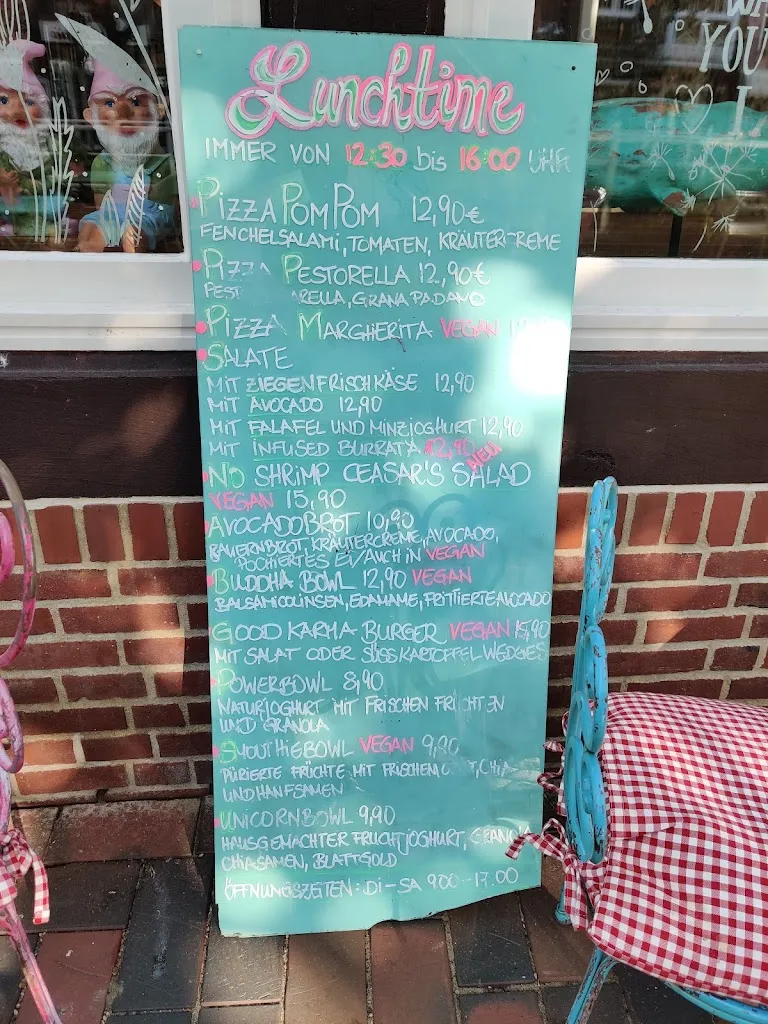 Lunchtime
IMMER VON 12:30 bis 16:00 UHR
PIZZA POMPOM 12,90€
FENCHELSALAMI, TOMATEN, KRÄUTERCREME
PIZZA PESTORELLA 12,90€
GRANA PADANO
PIZZA MARGHERITA VEGAN
SALATE
MIT ZIEGENFRISCHKÄSE 12,90
MIT AVOCADO 12,90
MIT FALAFEL UND MINZJOGHURT 12,90
MIT INFUSED BURRATA 12,90 NEU
NO SHRIMP CEASAR'S SALAD
VEGAN 15,90
AVOCADOBROT 10,90
BAUERNBROT, KRÄUTERCREME, AVOCADO,
POCHIERTES EI/AUCH IN VEGAN
BUDDHA BOWL 12,90 VEGAN
BALSAMICOLINSEN, EDAMAME, FRITTIERTE AVOCADO
GOOD KARMA BURGER VEGAN 15,90
MIT SALAT ODER SÜSSKARTOFFEL WEDGES
POWERBOWL 8,90
NATURJOGHURT MIT FRISCHEN FRÜCHTEN
UND GRANOLA
SMOOTHIEBOWL VEGAN 9,90
PÜRIERTE FRÜCHTE MIT FRISCHEM OBST, CHIA
UND HANFSAMEN
UNICORNBOWL 9,90
HAUSGEMACHTER FRUCHTJOGHURT, GRANOLA
CHIASAMEN, BLATTGOLD
ÖFFNUNGSZEITEN: DI-SA 9.00-17.00
YOU